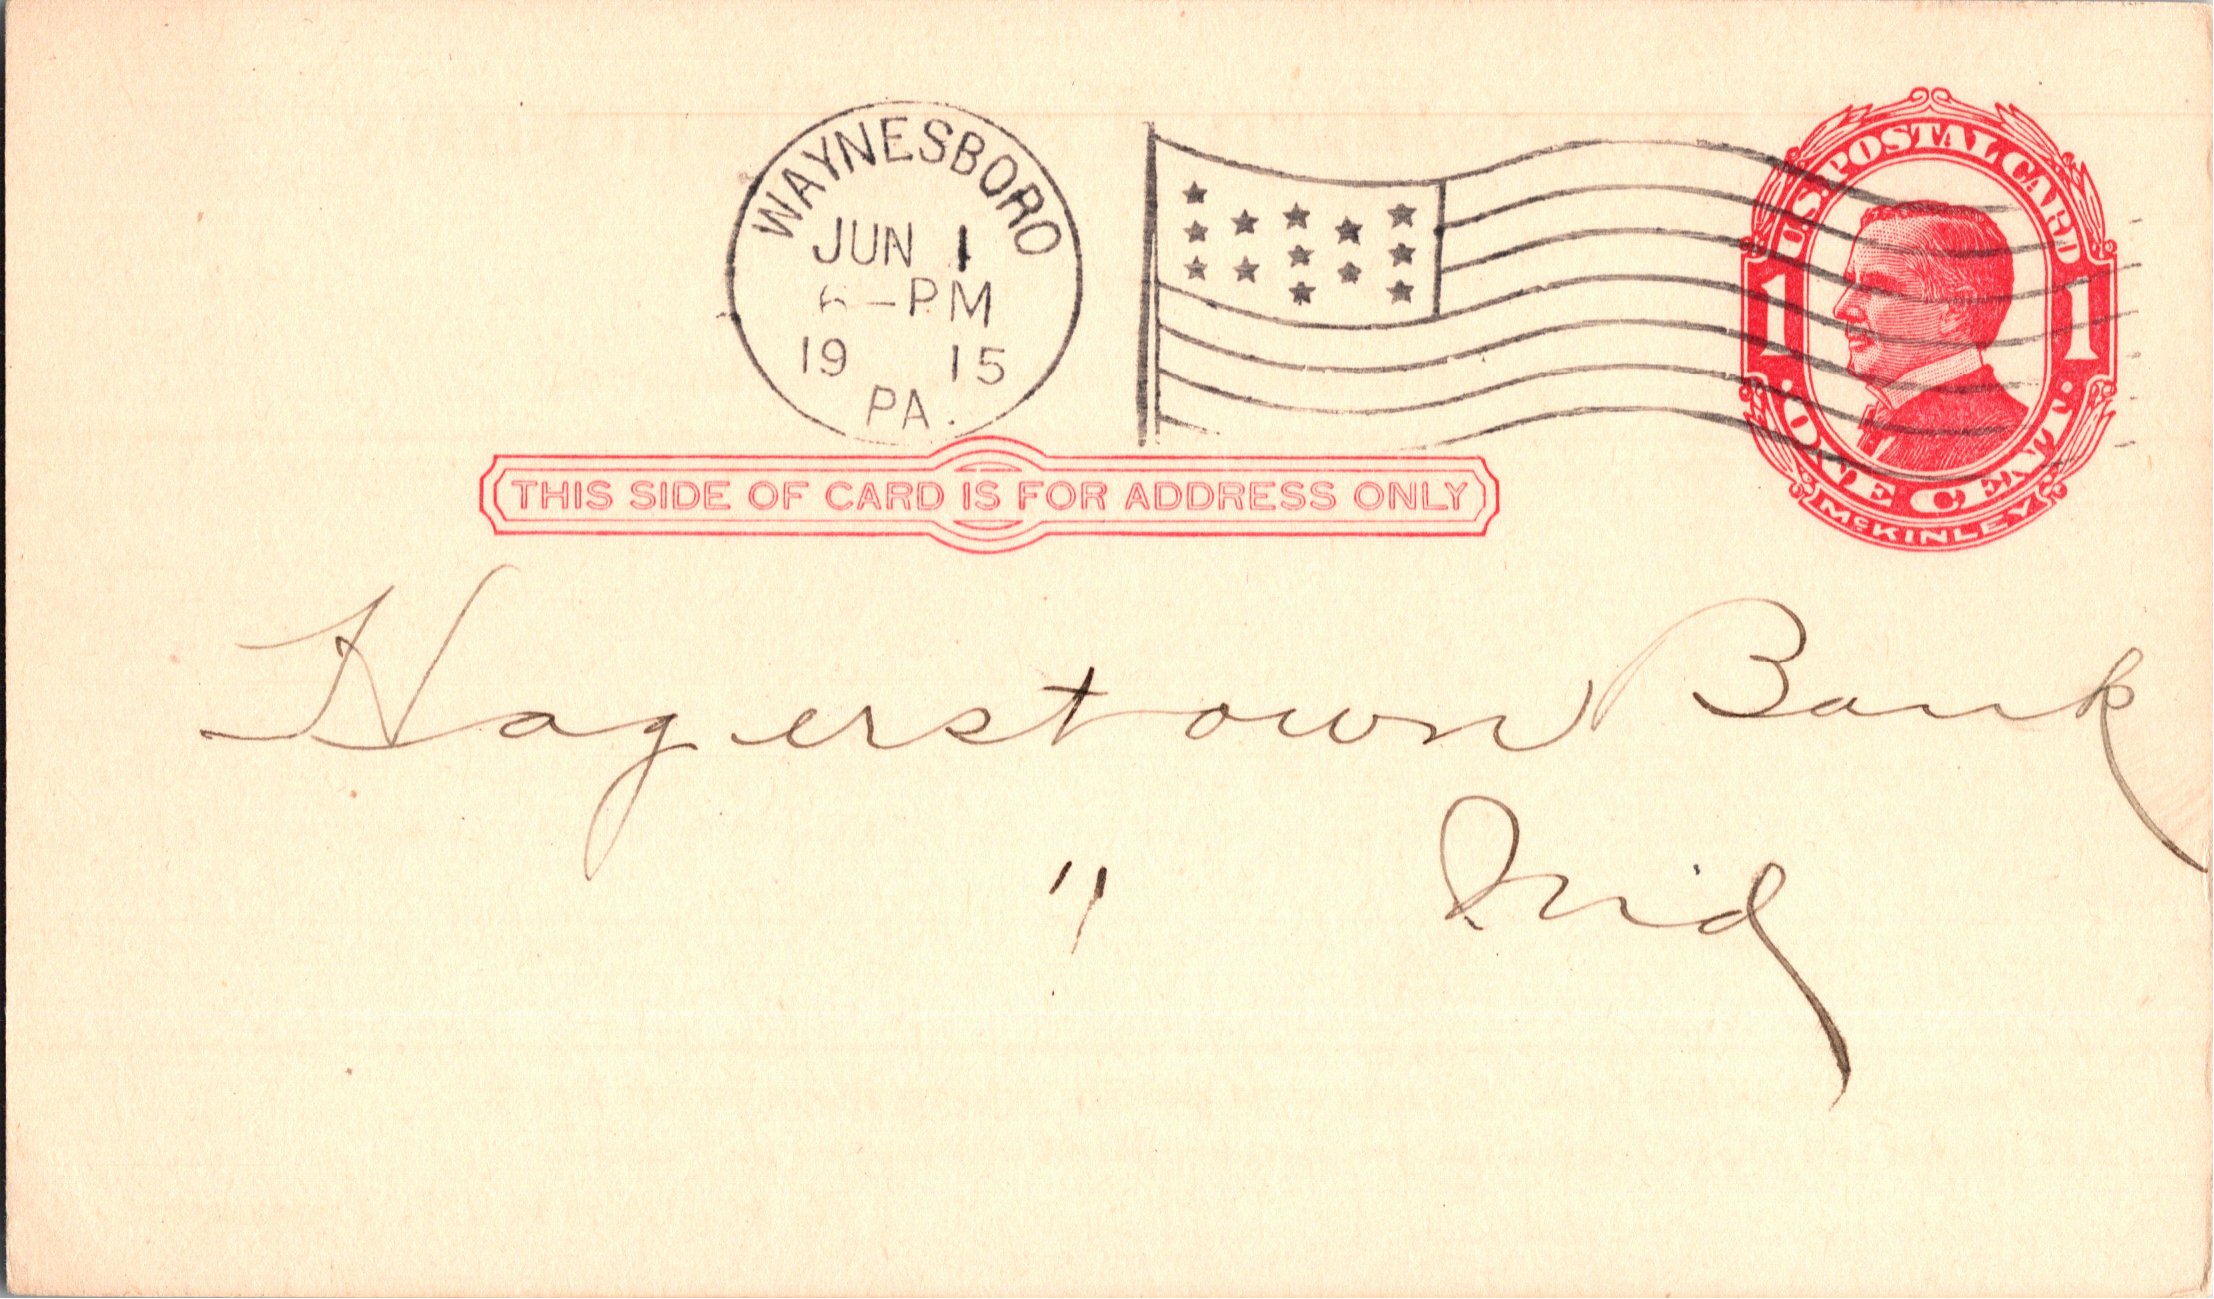 WAYNESBORO
JUN 1
6-PM
19 15
PA.
U.S. POSTAL CARD
1 1
· ONE CENT ·
McKINLEY
THIS SIDE OF CARD IS FOR ADDRESS ONLY
Hagerstown Bank
" Md